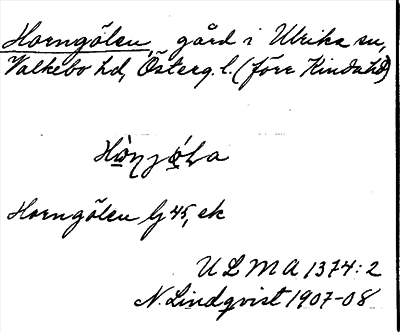 Horngölen, gård i Ulrika sn,
Valkebo hd, Österg. l. (förr Kinda hd)
Horngölen G 45, ek
ULMA 1374:2
N. Lindqvist 1907-08